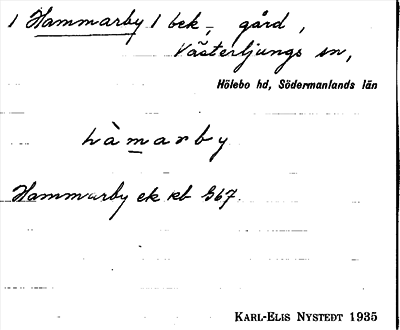 1 Hammarby 1 bek, gård,
Västerljungs sn,
Hölebo hd, Södermanlands län
hàmarby
Hammarby ek kb 567.
KARL-ELIS NYSTEDT 1935